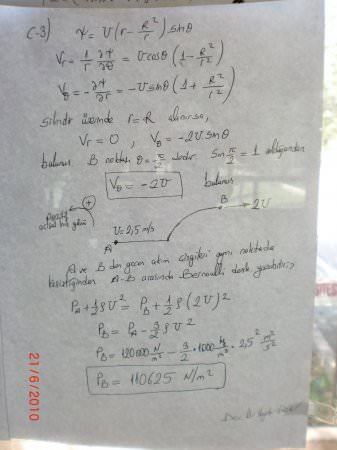 C-3) ψ = U(r - R²/r) sinθ
Vr = 1/r ∂ψ/∂θ = U cosθ (1 - R²/r²)
Vθ = -∂ψ/∂r = -U sinθ (1 + R²/r²)
silindir üzerinde r=R alınırsa,
Vr = 0 , Vθ = -2U sinθ
bulunur B noktası θ = π/2 dedir Sin π/2 = 1 olduğundan
Vθ = -2U bulunur
+
B 2U
U = 2,5 m/s
A
A ve B den geçen akım çizgileri aynı noktada
kesiştiğinden A-B arasında Bernoulli denk. yazabiliriz;
PA + 1/2 ρU² = PB + 1/2 ρ(2U)²
PB = PA - 3/2 ρU²
PB = 120000 N/m² - 3/2 * 1000 kg/m³ * 2,5² m²/s²
PB = 110625 N/m²
21/6/2010